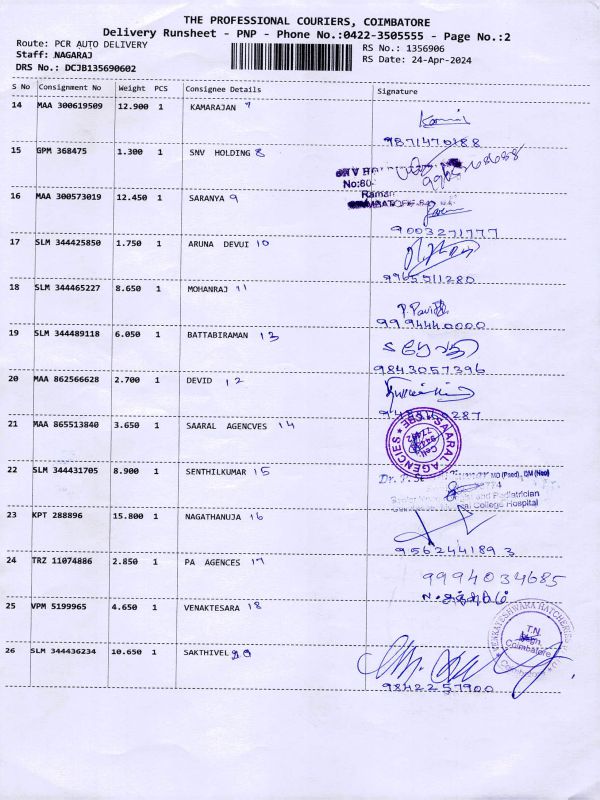 THE PROFESSIONAL COURIERS, COIMBATORE
Delivery Runsheet - PNP - Phone No.:0422-3505555 - Page No.:2
Route: PCR AUTO DELIVERY RS No.: 1356906
Staff: NAGARAJ RS Date: 24-Apr-2024
DRS No.: DCJB135690602
S No Consignment No Weight PCS Consignee Details Signature
14 MAA 300619509 12.900 1 KAMARAJAN 7
9871470188
15 GPM 368475 1.300 1 SNV HOLDING 8
No:80
Raman
16 MAA 300573019 12.450 1 SARANYA 9
9003271777
17 SLM 344425850 1.750 1 ARUNA DEVUI 10
9965511280
18 SLM 344465227 8.650 1 MOHANRAJ 11
9994440000
19 SLM 344489118 6.050 1 BATTABIRAMAN 13
9843057396
20 MAA 862566628 2.700 1 DEVID 12
21 MAA 865513840 3.650 1 SAARAL AGENCVES 14
SAARAL AGENCIES
22 SLM 344431705 8.900 1 SENTHILKUMAR 15
MD (Paed)., DM (Neo)
and Pediatrician
College Hospital
23 KPT 288896 15.800 1 NAGATHANUJA 16
9562441893
24 TRZ 11074886 2.850 1 PA AGENCES 17
9994034685
25 VPM 5199965 4.650 1 VENAKTESARA 18
VENKATESHWARA HATCHERIES
T.N.
Coimbatore
26 SLM 344436234 10.650 1 SAKTHIVEL 20
9842257900